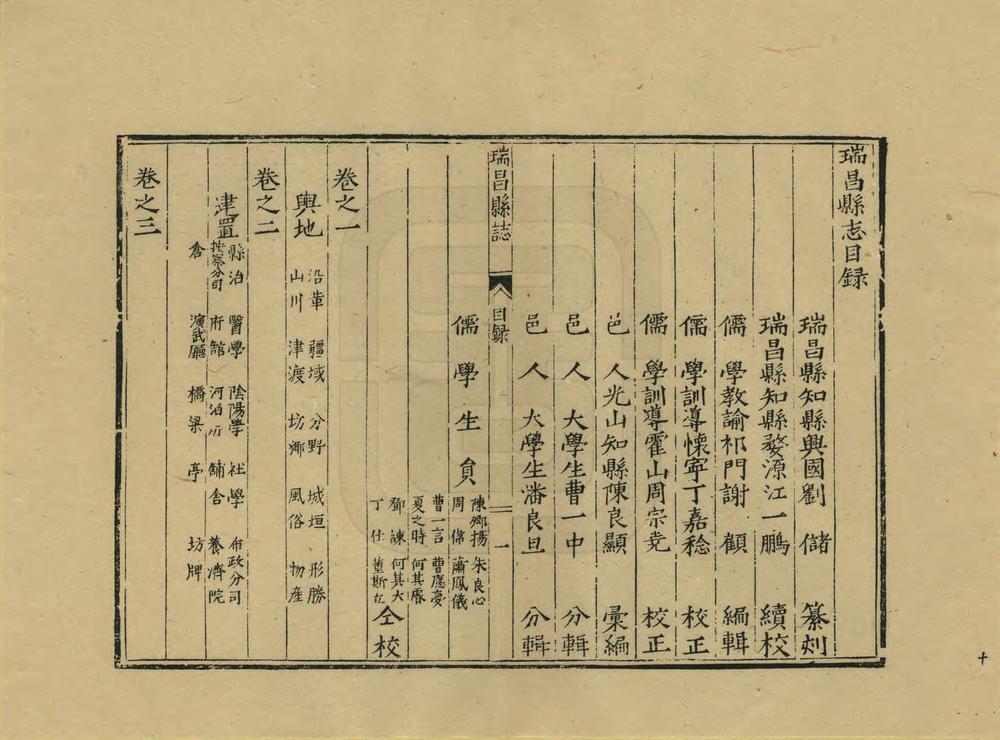 瑞昌縣志目録
瑞昌縣知縣興國劉儲纂刻
瑞昌縣知縣婺源江一鵬續校
儒學教諭祁門謝顧編輯
儒學訓導懷寧丁嘉稔校正
儒學訓導霍山周宗堯校正
邑人光山知縣陳良顯彙編
邑人大學生曹一中分輯
邑人大學生潘良旦分輯
瑞昌縣誌
目録
一
儒學生員
陳鄉揚 朱良心
周 蕭鳳儀
曹一言 曹應
夏之時 何其
鄧諫 何其大
丁仕 董斯
仝校
卷之一
輿地
沿革 疆域 分野 城垣 形勝
山川 津渡 坊鄉 風俗 物産
卷之二
建置
縣治 醫學 陰陽學 社學 布政分司
按察分司 府館 河泊所 舖舍 養濟院
倉 演武廳 橋梁 亭 坊牌
卷之三
十